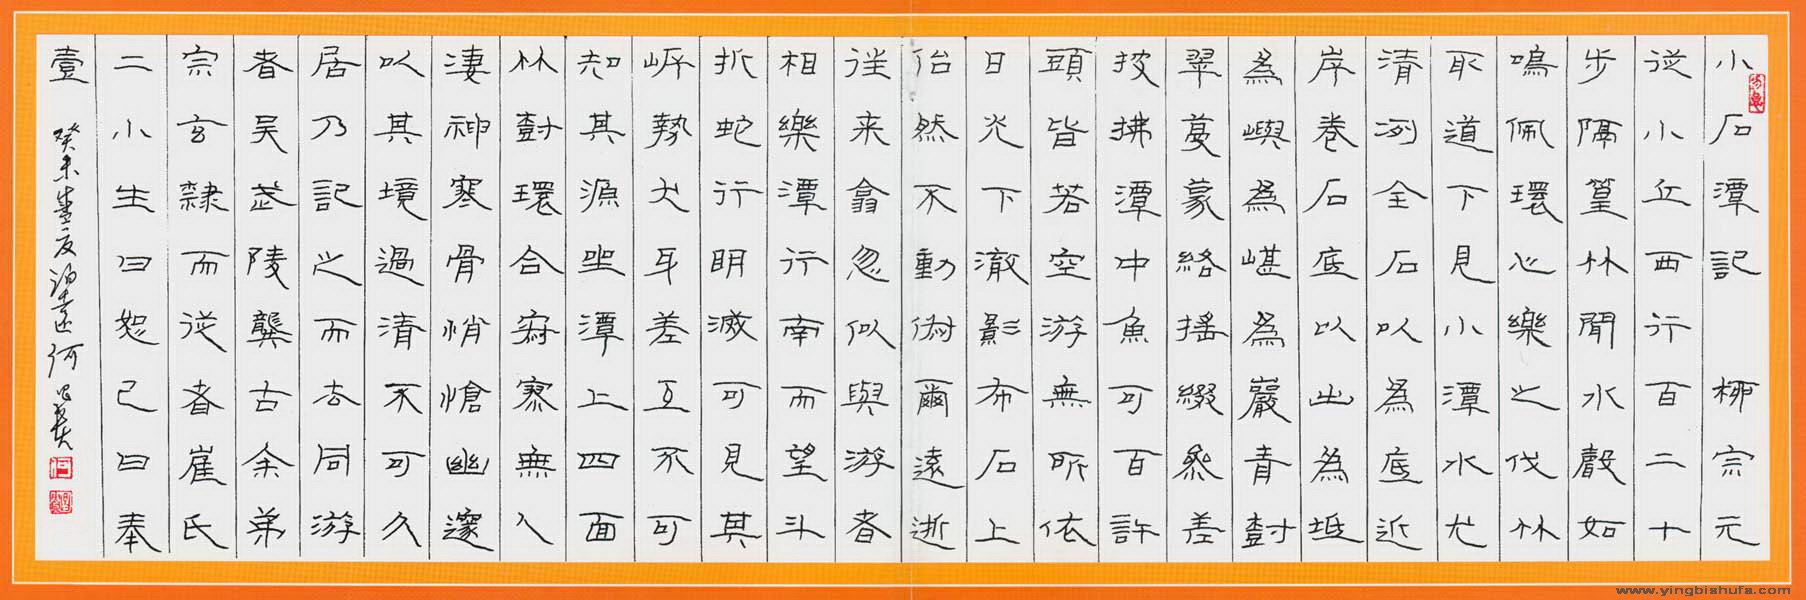 小石潭記 柳宗元
從小丘西行百二十
步隔篁竹聞水聲如
鳴佩環心樂之伐竹
取道下見小潭水尤
清冽全石以為底近
岸卷石底以出為坻
為嶼為嵁為巖青樹
翠蔓蒙絡搖綴參差
披拂潭中魚可百許
頭皆若空游無所依
日光下澈影布石上
佁然不動俶爾遠逝
往来翕忽似與游者
相樂潭行南而望斗
折蛇行明滅可見其
岸勢犬牙差互不可
知其源坐潭上四面
竹樹環合寂寥無人
凄神寒骨悄愴幽邃
以其境過清不可久
居乃記之而去同游
者吴武陵龔古余弟
宗玄隸而從者崔氏
二小生曰恕己曰奉
壹
癸未 何
www.yingbishufa.com